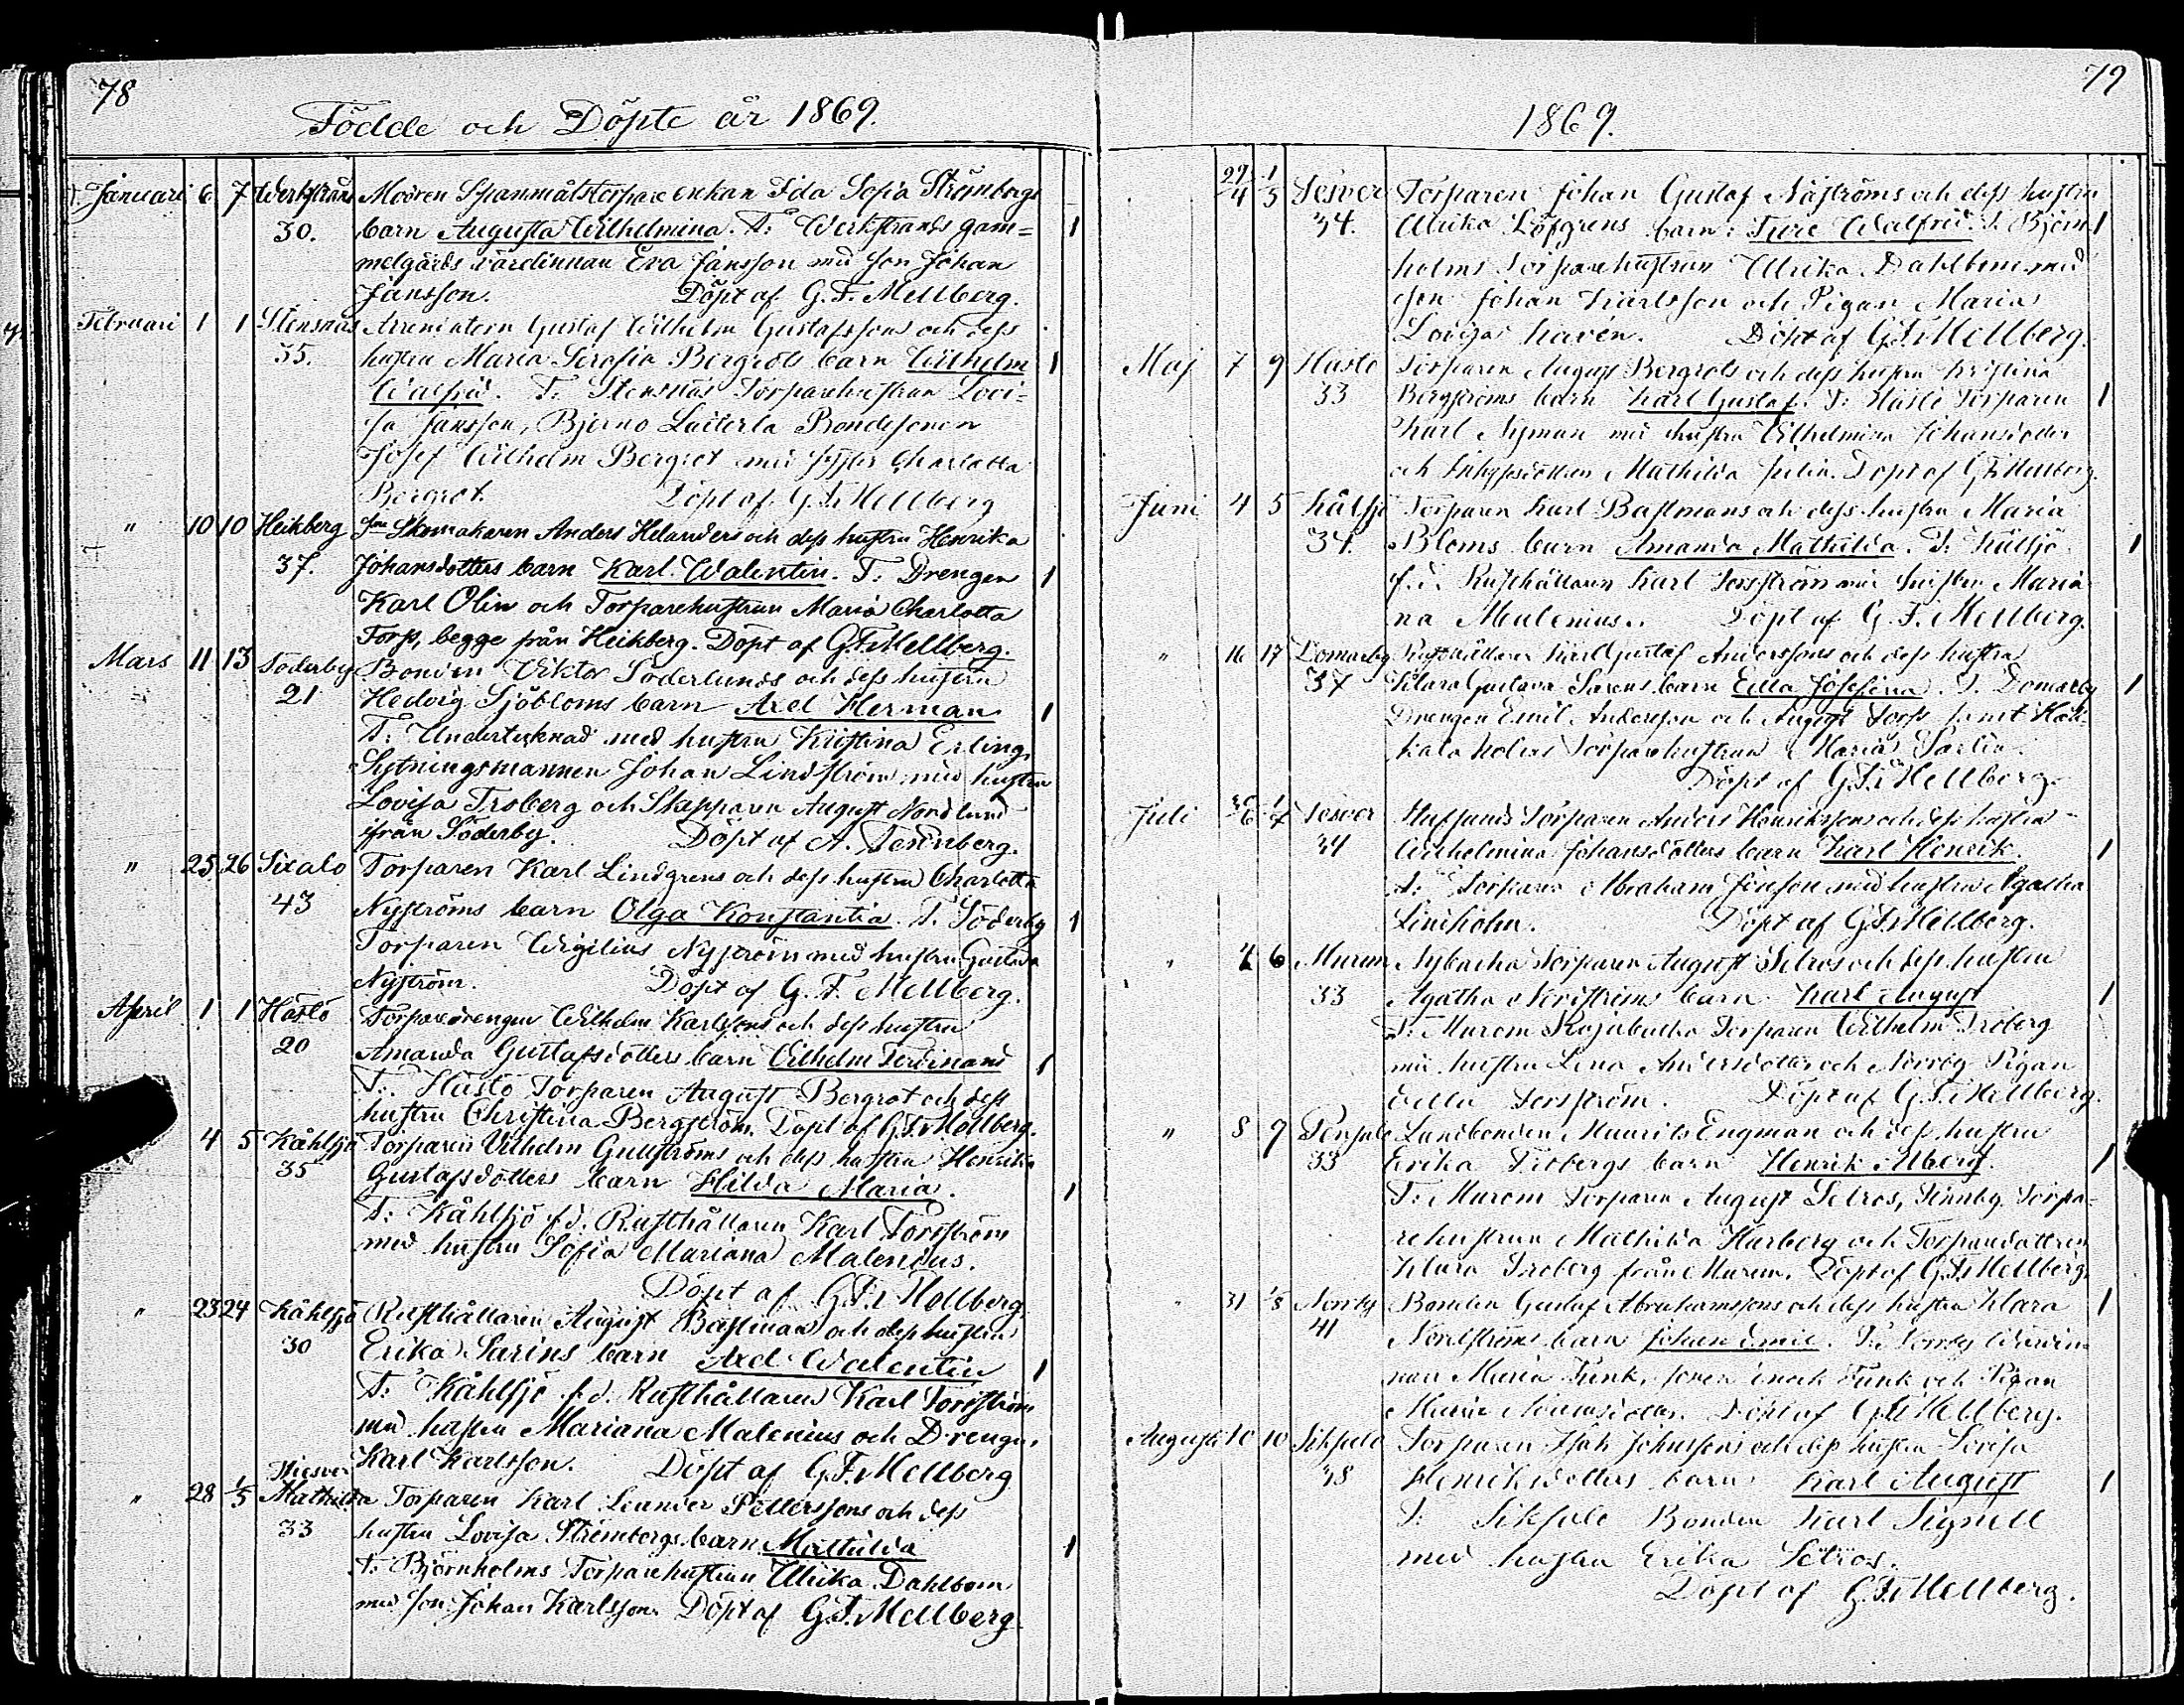 78
Födde och Döpte år 1869.
Januari 6 7 Werkstrand Modren Spanmålstorpare enkan Ida Sofia Strömbergs
30. barn Augusta Wilhelmina. T: Werkstrands gam= 1
melgårds värdinnan Eva Jansson med son Johan
Jansson. Döpt af G. F. Mellberg.
Februari 1 1 Stensnäs Arrendatorn Gustaf Wilhelm Gustafssons och dess
35. hustru Maria Serafia Bergrots barn Wilhelm 1
Walfrid. T. Stensnäs Torparehustrun Lovi=
sa Jansson, Bjerno Bondesonen
Josef Wilhelm Bergrot med syster Charlotta
Bergrot. Döpt af G. F. Mellberg
" 10 10 Heikberg Skomakaren Anders Helanders och dess hustru Henrika
37. Johansdotters barn Karl Walentin. T: Drengen 1
Karl Olin och Torparehustrun Maria Charlotta
Torp, begge från Heikberg. Döpt af G. F. Mellberg.
Mars 11 13 Söderby Bonden Viktor Söderlunds och dess hustru
21 Hedvig Sjöbloms barn Axel Herman 1
T: Undertecknad med hustru Kristina Erling,
Sytningsmannen Johan Lindström med hustru
Lovisa Troberg och Skepparen August Nordlund
ifrån Söderby. Döpt af A.
" 25 26 Sixalo Torparen Karl Lindgrens och dess hustru Charlotta
43 Nyströms barn Olga Konstantia. T. Söderby 1
Torparen Wigilius Nyström med hustru Gustava
Nyström. Döpt af G. F. Mellberg.
April 1 1 Hästö Torparedrengen Wilhelm Karlssons och dess hustru
20 Amanda Gustafsdotters barn Wilhelm Ferdinand 1
T: Hästö Torparen August Bergrot och dess
hustru Christina Bergström. Döpt af G. F. Mellberg.
4 5 Kåhlsjö Torparen Vilhelm Gullströms och dess hustru Henrika
35 Gustafsdotters barn Hilda Maria. 1
T: Kåhlsjö f. d. Rusthållaren Karl Forsström
med hustru Sofia Mariana Malenius.
Döpt af G. F. Mellberg.
" 23 24 Kåhlsjö Rusthållaren August Bastmans och dess hustru
30 Erika Sarins barn Axel Walentin 1
T: Kåhlsjö f. d. Rusthållaren Karl Forsström
med hustru Mariana Malenius och Drengen
Karl Karlsson. Döpt af G. F. Mellberg
" 28 1/5 Mathilda Torparen Karl Leander Petterssons och dess
33 hustru Lovisa Strömbergs barn Mathilda 1
T: Björnholms Torparehustrun Ulrika Dahlbom
med son Johan Karlsson. Döpt af G. F. Mellberg
79
1869.
29/4 1/5 Tesver Torparen Johan Gustaf Näströms och dess hustru
34. Ulrika Löfgrens barn: Ture Walfrid. T. Björn 1
holms Torparehustrun Ulrika Dahlbom med
son Johan Karlsson och Pigan Maria
Lovisa Döpt af G. F. Mellberg.
Maj 7 9 Hästö Torparen August Bergrots och dess hustru Kristina
33 Bergströms barn Karl Gustaf. T: Hästö Torparen 1
Karl Nyman med hustru Wilhelmina Johansdotter
och Mathilda Julin. Döpt af G. F. Mellberg.
Juni 4 5 Kålsjö Torparen Karl Bastmans och dess hustru Maria
34. Bloms barn Amanda Mathilda. T: Kålsjö 1
f. d. Rusthållaren Karl Forsström med hustru Maria
na Malenius. Döpt af G. F. Mellberg.
" 16 17 Domarby Rusthållaren Karl Gustaf Anderssons och dess hustru
37 Klara Gustava Sarens barn Josefina. T. Domarby 1
Drengen Emil Andersson och August Torp samt
Torparehustrun Maria Sarlin.
Döpt af G. F. Mellberg.
Juli Tesver Torparen Anders Henrikssons och dess hustru
34 Wilhelmina Johansdotters barn Karl Henrik. 1
T: Torparen Abraham Jonsson med hustru Agatha
Lindholm. Döpt af G. F. Mellberg.
" 6 Murom Nybacka Torparen August Setros och dess hustru
33 Agatha barn Karl August 1
T: Murom Torparen Wilhelm Troberg
med hustru Lena Andersdotter och Norrby Pigan
Forsström. Döpt af G. F. Mellberg.
" 8 9 Persale Landbonden Maurits Engman och dess hustru
33 Erika Trobergs barn Henrik Albert. 1
T: Murom Torparen August Setros, Finnby Torpa-
rehustrun Mathilda Karberg och Torparedottren
Klara Troberg från Murom. Döpt af G. F. Mellberg.
31 1/8 Norrby Bonden Gustaf Abrahamssons och dess hustru Klara 1
41 Nordströms barn Johan Emil. T: Norrby Wärdin
nan Maria Funk, sonen Enok Funk och Pigan
Maria Döpt af G. F. Mellberg.
Augusti 10 10 Siksale Torparen Isak Johanssons och dess hustru Lovisa
38 Henriksdotters barn Karl August 1
T: Siksale Bonden Karl Signell
med hustru Erika Setros.
Döpt af G. F. Mellberg.